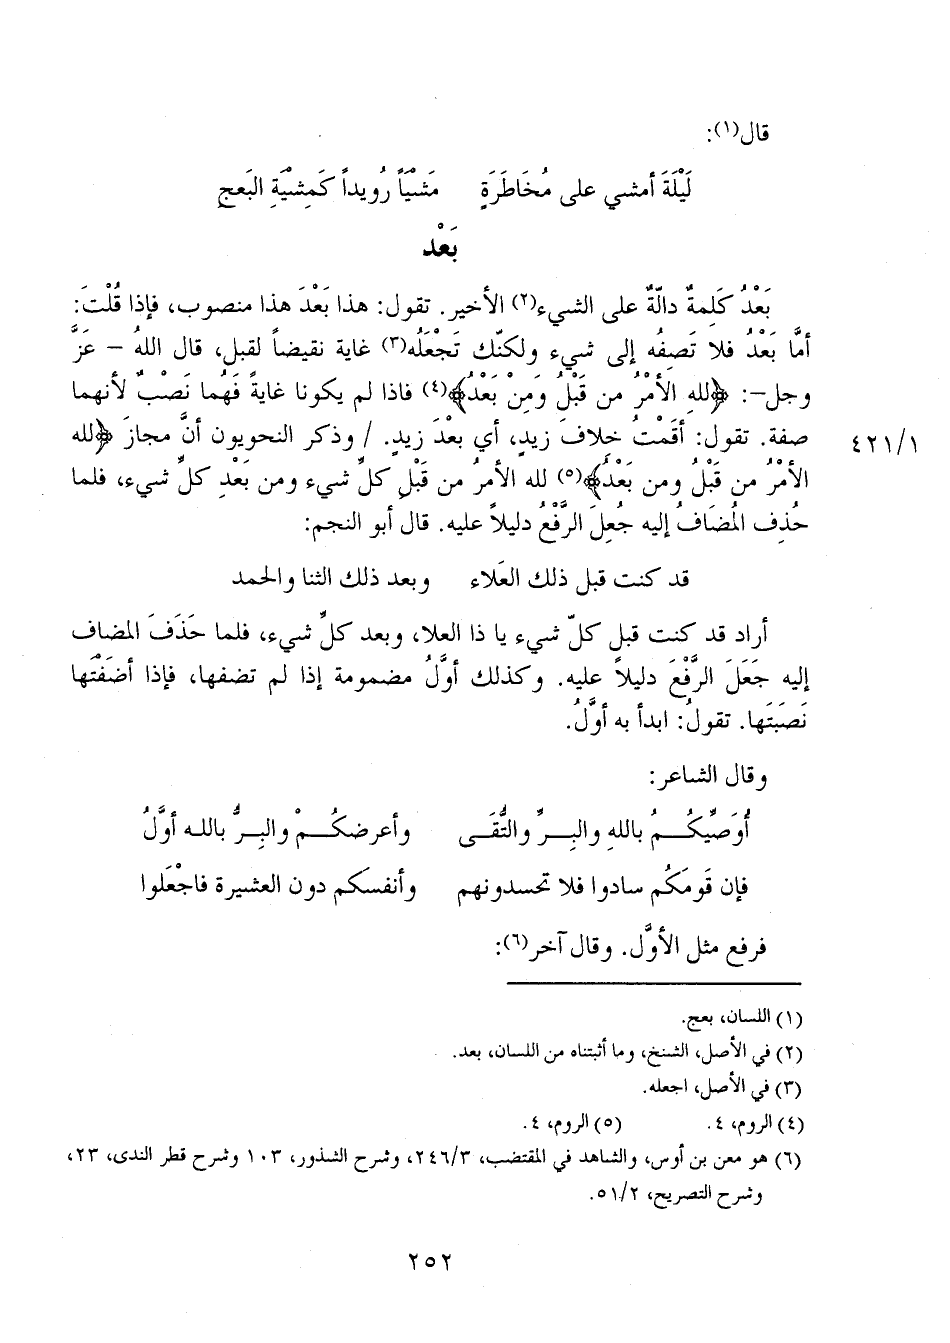 قال(١):
لَيْلَةَ أمشي على مُخَاطَرَةٍ مَشْيَاً رُويداً كَمِشْيَةِ البَعجِ
بَعْد
بَعْدُ كَلِمةٌ دالّةٌ على الشيء(٢) الأخير. تقول: هذا بَعْدَ هذا منصوب، فإذا قُلْتَ:
أمَّا بَعْدُ فلا تَصِفُه إلى شيء ولكنّك تَجْعَلُه(٣) غاية نقيضاً لقبل، قال اللهُ – عزَّ
وجل–: ﴿لله الأمْرُ من قَبْلُ ومَنِْ بَعْدُ﴾(٤) فاذا لم يكونا غايةً فَهُما نَصْبٌ لأنهما
صفة. تقول: أقَمْتُ خلافَ زيدٍ، أي بعْدَ زيدٍ. / وذكر النحويون أنَّ مجازَ ﴿لله
٤٢١/١
الأمْرُ من قَبْلُ ومن بَعْدُ﴾(٥) لله الأمرُ من قَبْلِ كلِّ شيء ومن بَعْدِ كلِّ شيء، فلما
حُذِف المُضَافُ إليه جُعِلَ الرَّفْعُ دليلاً عليه. قال أبو النجم:
قد كنت قبل ذلك العَلاء وبعد ذلك الثنا والحمد
أراد قد كنت قبل كلّ شيء يا ذا العلا، وبعد كلِّ شيء، فلما حَذَفَ المضاف
إليه جَعَلَ الرَّفْعَ دليلاً عليه. وكذلك أوَّلُ مضمومة إذا لم تضفها، فإذا أضَفْتَها
نَصَبَتَها. تقولُ: ابدأ به أوَّلُ.
وقال الشاعر:
أُوَصِّيكُـــمُ باللهِ والبِـــرِّ والتُّقَــى وأعرضكُـــمْ والبِــرُّ باللــه أوَّلُ
فإن قَومَكُم سادوا فلا تحسدونهم وأنفسكم دون العشيرة فاجْعَلوا
فرفع مثل الأوَّل. وقال آخر(٦):
(١) اللسان، بعج.
(٢) في الأصل، الشنخ، وما أثبتناه من اللسان، بعد.
(٣) في الأصل، اجعله.
(٤) الروم، ٤. (٥) الروم، ٤.
(٦) هو معن بن أوس، والشاهد في المقتضب، ٢٤٦/٣، وشرح الشذور، ١٠٣ وشرح قطر الندى، ٢٣،
وشرح التصريح، ٥١/٢.
٢٥٢